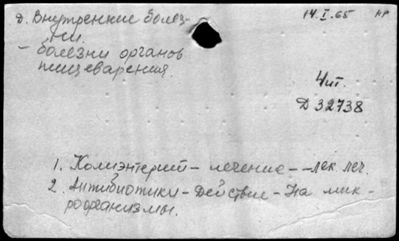 д. Внутренние болез-
ни. 14.I.65 кр
- болезни органов
пищеварения.
Чит.
Д 32738
1. Колиэнтерит - лечение - -лек. леч.
2. Антибиотики - Действие - На мик-
роорганизмы.